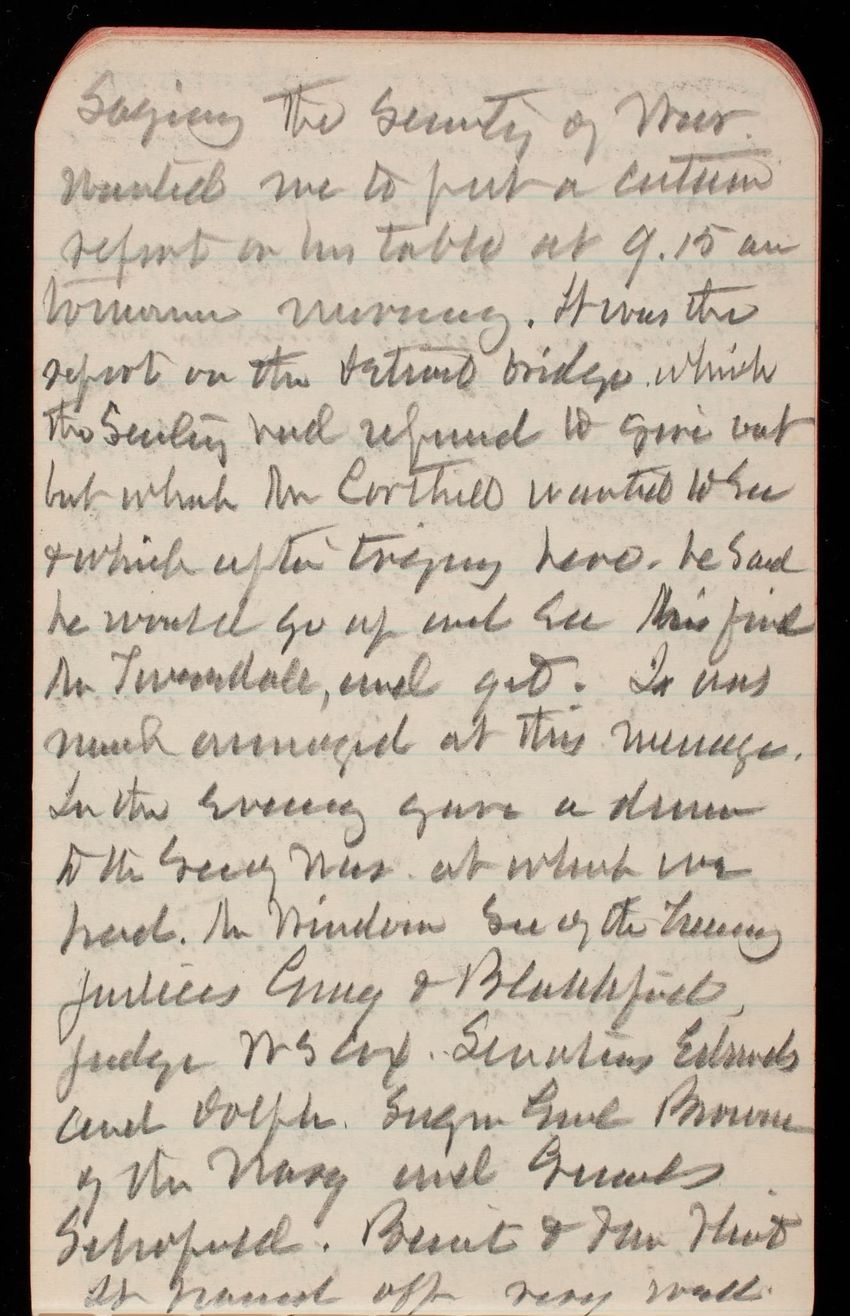 Saying the Secretary of War
wanted me to put a certain
report on his table at 9.15 am
tomorrow morning. It was the
report on the Detroit bridge which
the Secrety had refused to give out
but which Mr Corthell wanted to see
& which after trying here. he said
he would go up and see this find
Mr Tweeddale, and get. Is was
much annoyed at this message.
In the evening gave a dinner
to the Secy of War at which we
had. Mr Windom Sec of the Treasury
Justices Gray & Blatchford,
Judge W S Cox. Senators Edmunds
and Dolph. Surgn Genl Browne
of the Navy and Generals
Schofield. Benét &
It passed off very well